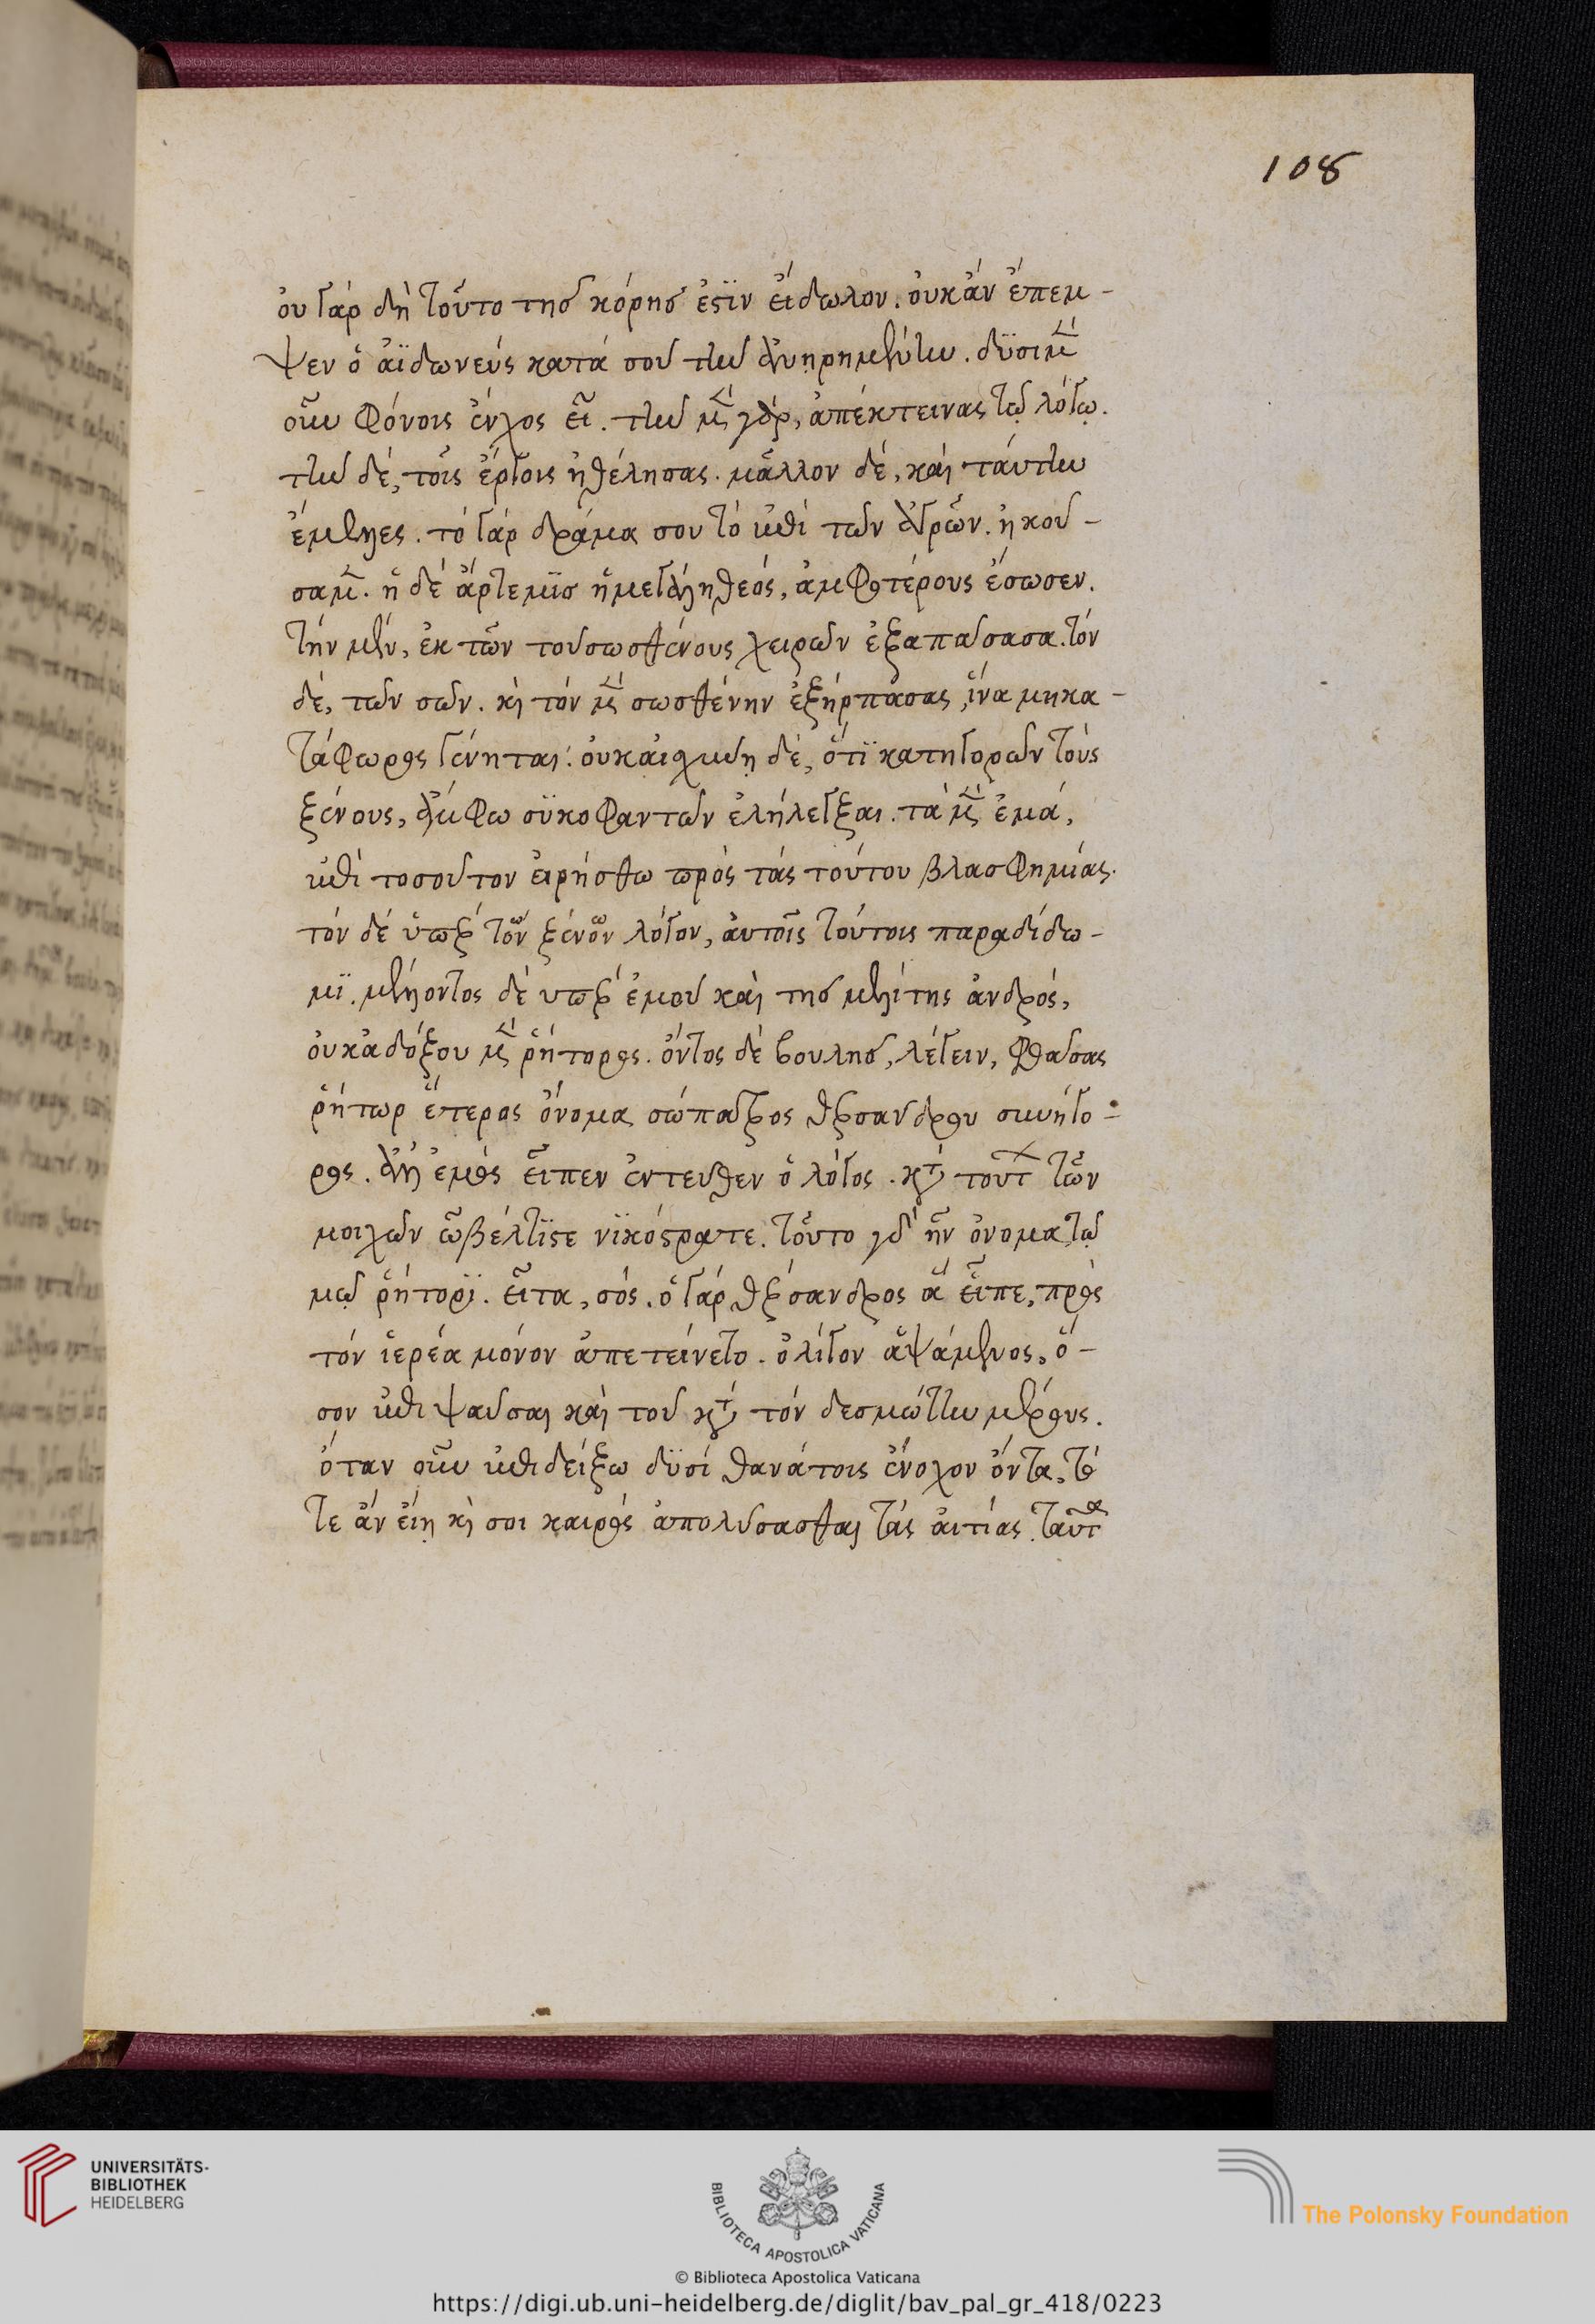 108
ὀυ γάρ δὴ τοῦτο τῆσ κόρησ ἐςϊν ἔιδωλον. ὀυκἄν ἔπεμ-
ψεν ὁ ἀϊδωνεύς κατά σοῦ τὴν ἀνηρημένην. δϋσὶ μὲν
οὖν φόνοις ἔνοχος εἶ. τὴν μὲν γὰρ, ἀπέκτεινας τῷ λόγῳ.
τὴν δέ, τοῖς ἔργοις ἠθέλησας. μᾶλλον δέ, καὶ τάυτην
ἔμελλες. τό γάρ δράμα σου τό ἐπὶ τῶν ἀγρῶν. ἠκού-
σαμεν. ἡ δέ ἄρτεμϊσ ἡ μεγάλη θεός, ἀμφοτέρους ἔσωσεν.
τήν μέν, ἐκ τῶν τοῦ σωσθένους χειρῶν ἐξαπασασα. τόν
δέ, τῶν σῶν. κὶ τόν μὲν σωσθένην ἐξήρπασας, ἵνα μηκα-
τάφωρος γένηται. ὀυκἀισχύνῃ δέ, ὅτϊ κατηγορῶν τοὺς
ξένους, ἄμφω σϋκοφαντῶν ἐλήλεγξαι. τὰ μὲν ἐμά,
ἐπὶ τοσοῦτον ἐιρήσθω πρὸς τάς τούτου βλασφημίας.
τόν δέ ὑπὲρ τῶν ξένων λόγον, ἀυτοῖς τούτοις παραδίδω-
μϊ. μέλλοντος δέ ὑπὲρ ἐμοῦ καὶ τῆσ μελίτης ἀνδρός,
ὀυκἀδόξου μὲν ῥήτορος. ὄντος δέ βουλῆσ, λέγειν, φθασας
ῥήτωρ ἕτερος ὄνομα σώπατρος θερσανδρου συνήγο-
ρος. ἀλλ' ἐμός εἶπεν ἐντευθεν ὁ λόγος. κατὰ τούτων τῶν
μοιχῶν ὦ βέλτϊςε νϊκόςρατε. τοῦτο γὰρ ἦν ὀνομα τῷ
μῷ ῥήτορϊ. εἶτα, σός. ὁ γάρ θέρσανδρος ἅ εἶπε, πρός
τόν ἱερέα μόνον ἀπετείνετο. ὀλίγον ἁψάμενος, ὅ-
σον ἐπιψαῦσαι καὶ τοῦ κατὰ τόν δεσμώτην μέρους.
ὅταν οὖν ἐπιδείξω δϋσί θανάτοις ἔνοχον ὄντα, τό
τε ἄν ἔιη κὶ σοι καιρός ἀπολυσασθαι τάς ἀιτίας. ταῦτα
UNIVERSITÄTS-
BIBLIOTHEK
HEIDELBERG
BIBLIOTECA APOSTOLICA VATICANA
The Polonsky Foundation
© Biblioteca Apostolica Vaticana
https://digi.ub.uni-heidelberg.de/diglit/bav_pal_gr_418/0223